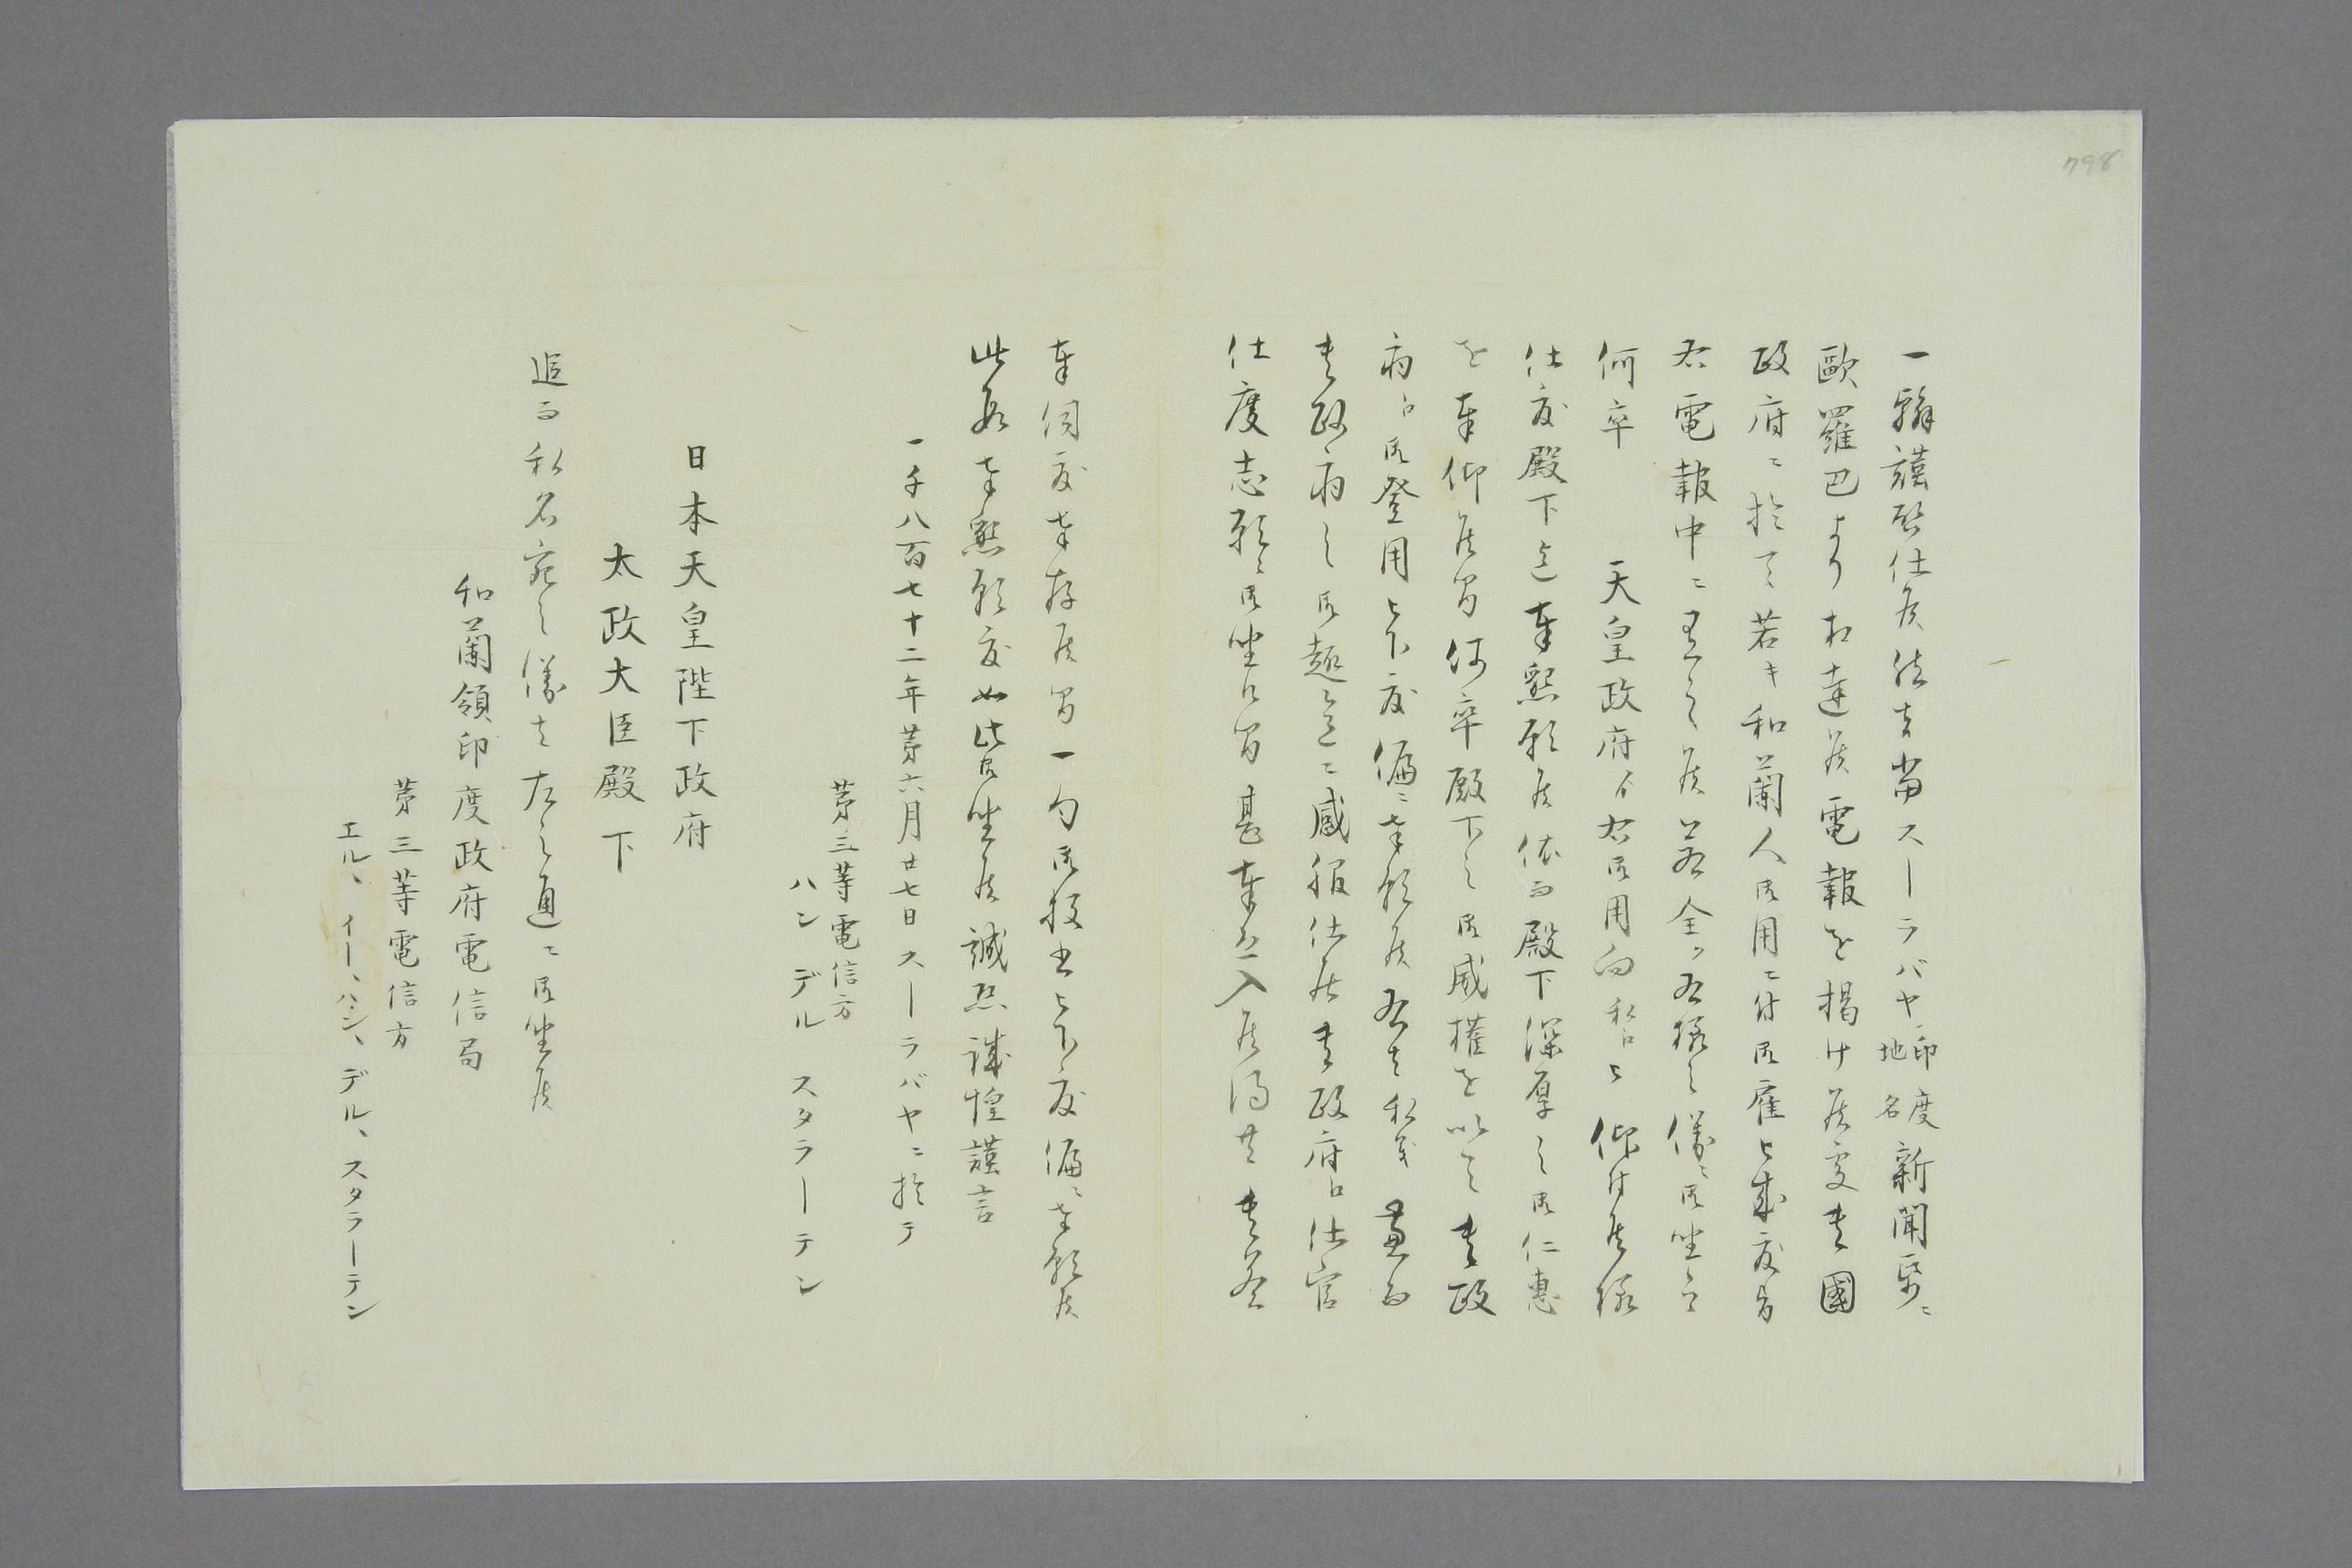 798
一翰謹啓仕候然者當スーラバヤ印度地名新聞帋ニ
歐羅巴より相達候電報を掲け候處貴國
政府ニ於て若キ和蘭人御用ニ付御雇被成度旨
右電報中ニ有之候若全ク右様之儀ニ御坐候ハヽ
何卒　天皇政府ゟ右御用向私ニ被仰付候様
仕度殿下迄奉懇願候依而殿下深厚之御仁惠
を奉仰候間何卒殿下之御威權を以て貴政
府ニ御登用被下度偏ニ奉願候右者私義兼而
貴政府之御趣意ニ感服仕居貴政府ニ仕官
仕度志願ニ御坐候間甚奉恐入候得共貴答
奉伺度奉存候間一句御投書被下度偏ニ奉願候
此段奉懇願度如此御坐候誠恐誠惶謹言
一千八百七十二年第六月廿七日スーラバヤニ於テ
第三等電信方
ハン デル スタラーテン
日本天皇陛下政府
太政大臣殿下
追而私名宛之儀者左之通ニ御坐候
和蘭領印度政府電信局
第三等電信方
エル、イー、ハン、デル、スタラーテン